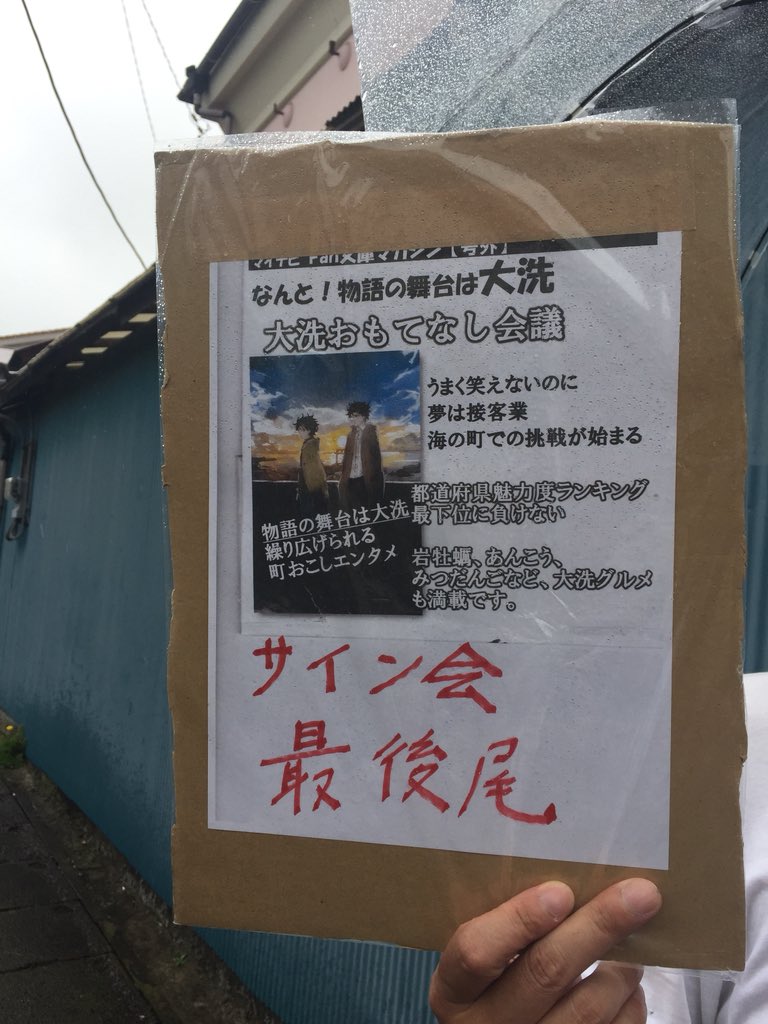 マイナビ Fan文庫マガジン【号外】
なんと！物語の舞台は大洗
大洗おもてなし会議
うまく笑えないのに
夢は接客業
海の町での挑戦が始まる
都道府県魅力度ランキング
最下位に負けない
物語の舞台は大洗
繰り広げられる
町おこしエンタメ
岩牡蠣、あんこう、
みつだんごなど、大洗グルメ
も満載です。
サイン会
最後尾